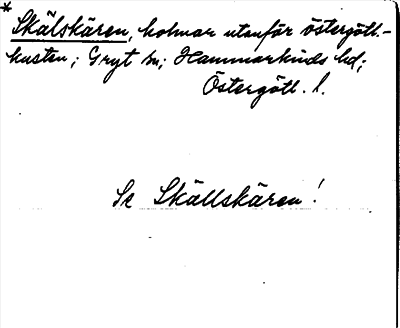 * Skälskären, holmar utanför östergötl.-
kusten; Gryt sn; Hammarkinds hd;
Östergötl. l.
Se Skällskären!